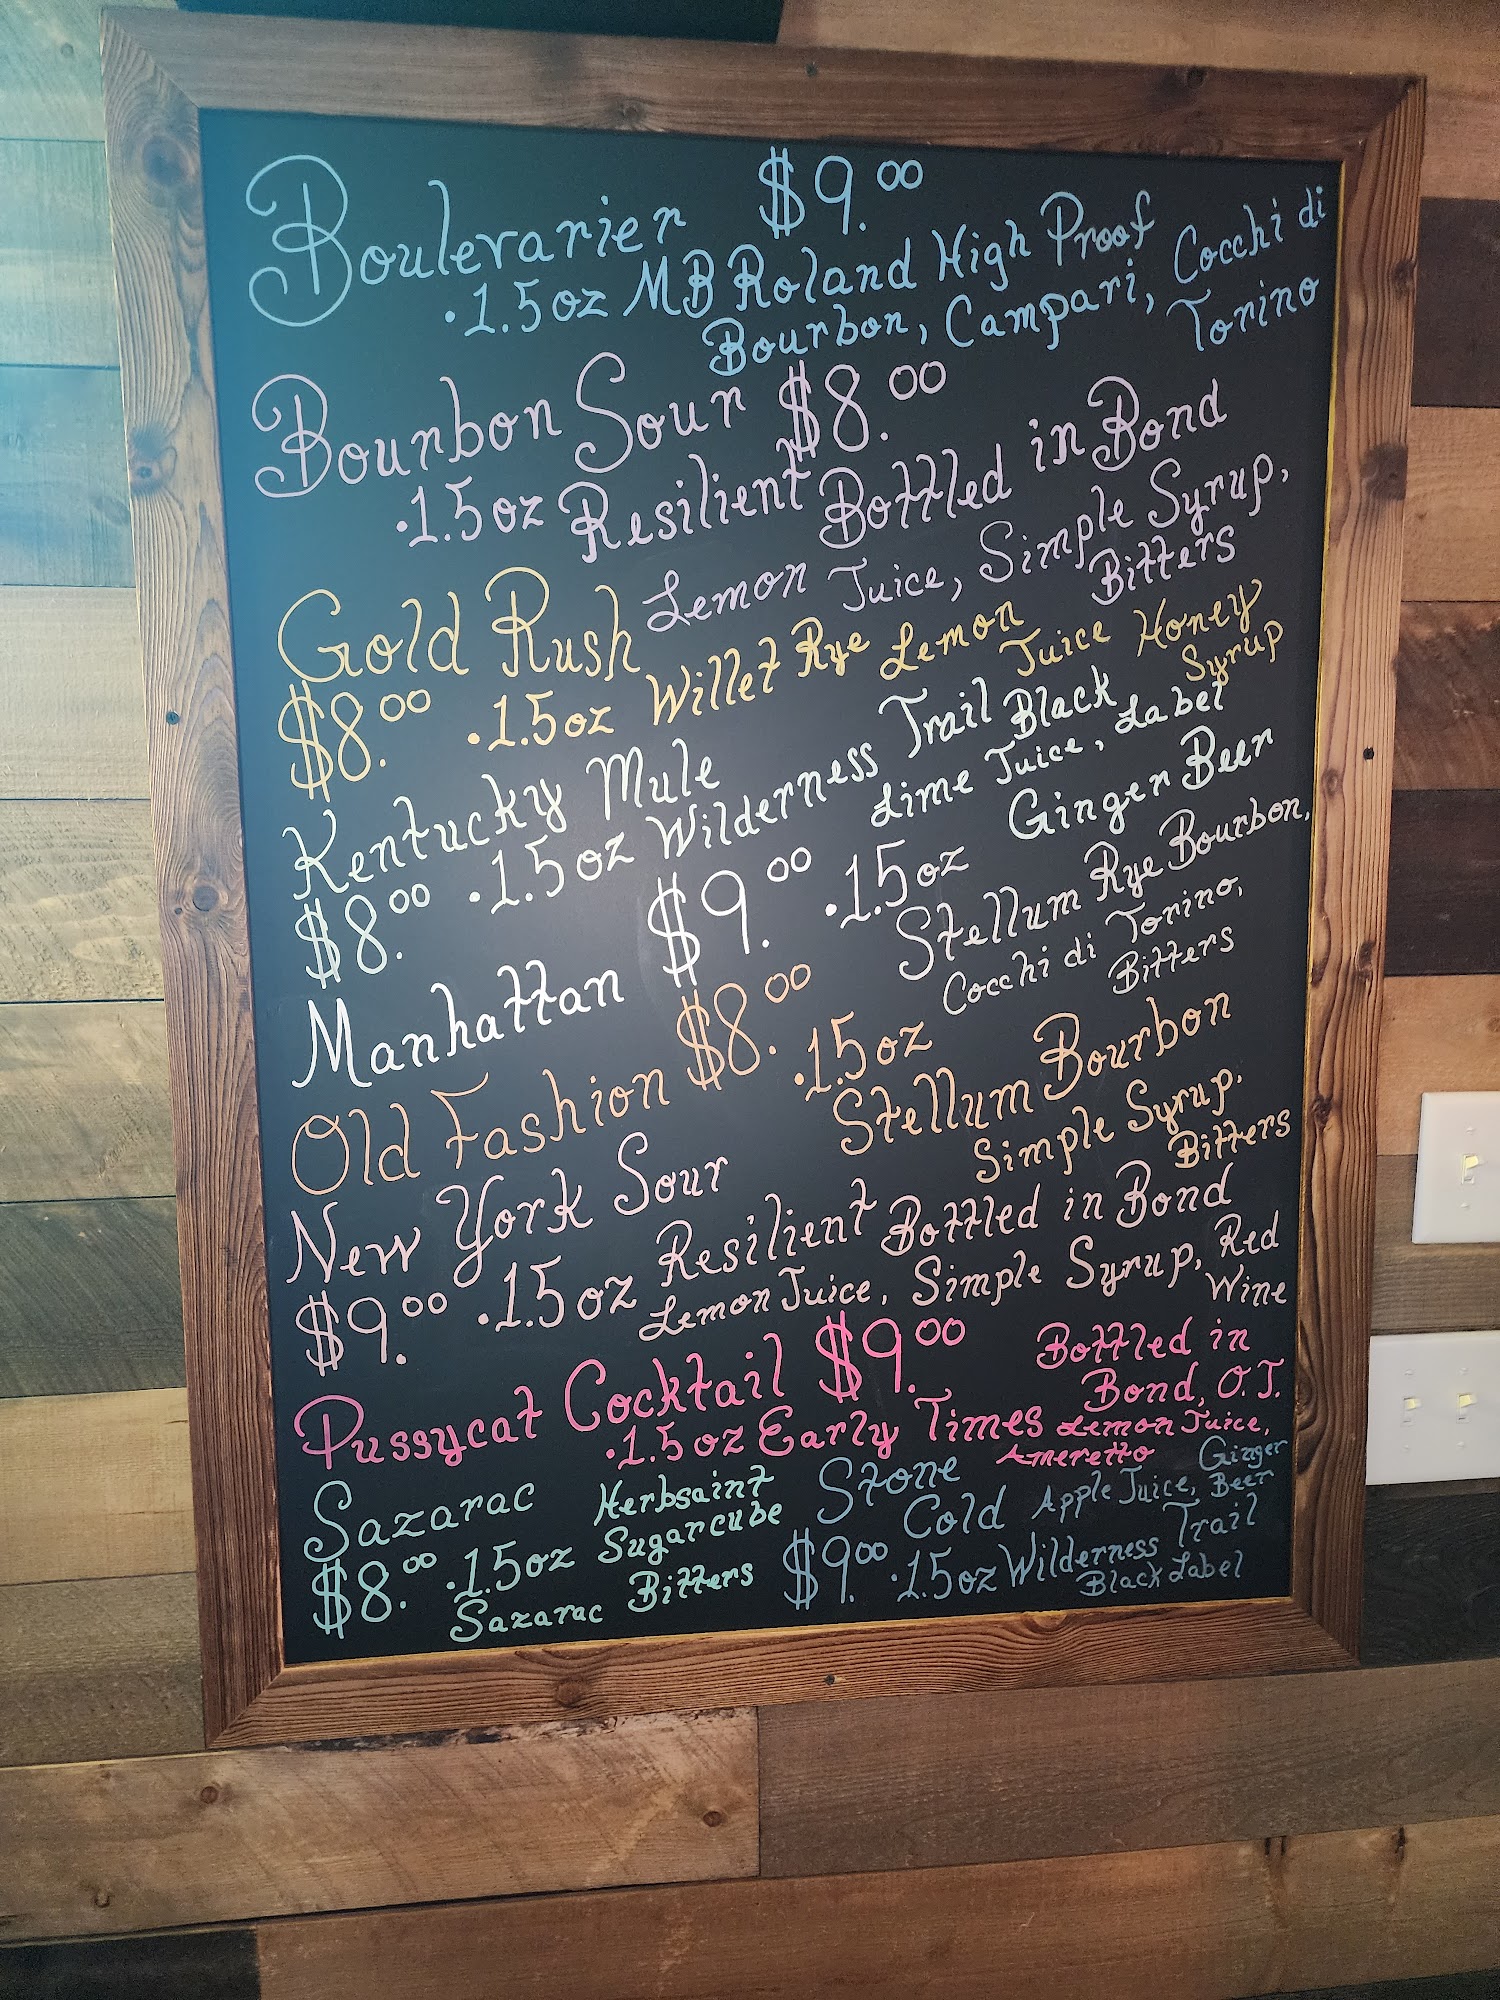 Boulevarier $9.00
.1.5oz MB Roland High Proof
Bourbon, Campari, Cocchi di
Torino
Bourbon Sour $8.00
.1.5oz Resilient Bottled in Bond
Lemon Juice, Simple Syrup,
Bitters
Gold Rush
$8.00 .1.5oz Willet Rye Lemon Juice Honey
Syrup
Kentucky Mule
$8.00 .1.5oz Wilderness Trail Black
Label
Lime Juice,
Ginger Beer
Manhattan $9.00 .1.5oz
Stellum Rye Bourbon,
Cocchi di Torino,
Bitters
Old Fashion $8.00 .1.5oz
Stellum Bourbon
Simple Syrup,
Bitters
New York Sour
$9.00 .1.5oz Resilient Bottled in Bond
Lemon Juice, Simple Syrup, Red
Wine
Pussycat Cocktail $9.00
.1.5oz Early Times
Bottled in
Bond, O.J.
Lemon Juice,
Ameretto
Sazarac
$8.00 .1.5oz
Sazarac
Herbsaint
Sugarcube
Bitters
Stone
Cold
$9.00 .1.5oz Wilderness Trail
Black Label
Apple Juice, Ginger
Beer